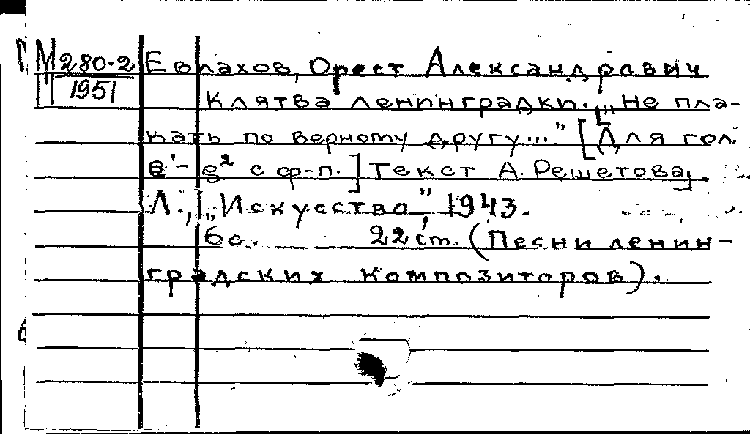 М 280-2 Евлахов, Орест Александрович
1951
Клятва ленинградки. „Не пла-
кать по верному другу..." [Для гол.
e¹-g² с ф-п.] Текст А. Решетова.
Л., „Искусство", 1943.
6 с. 22 см. (Песни ленин-
градских композиторов).